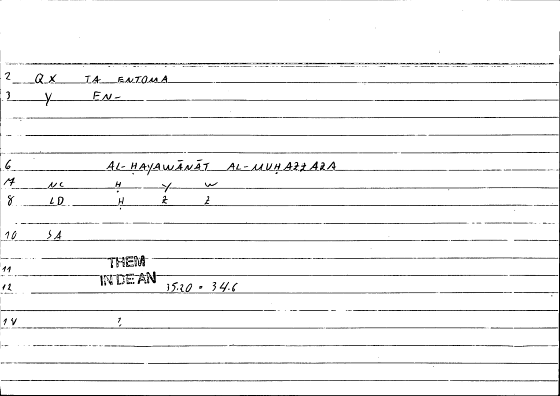 2 QX TA ENTOMA
3 Y EN-
6 AL-ḤAYAWĀNĀT AL-MUḤAZZAZA
17 NC Ḥ Y W
8 LD Ḥ Z Z
10 SA
11 THEM
12 IN DE AN 35.20 = 34.6
14 ?